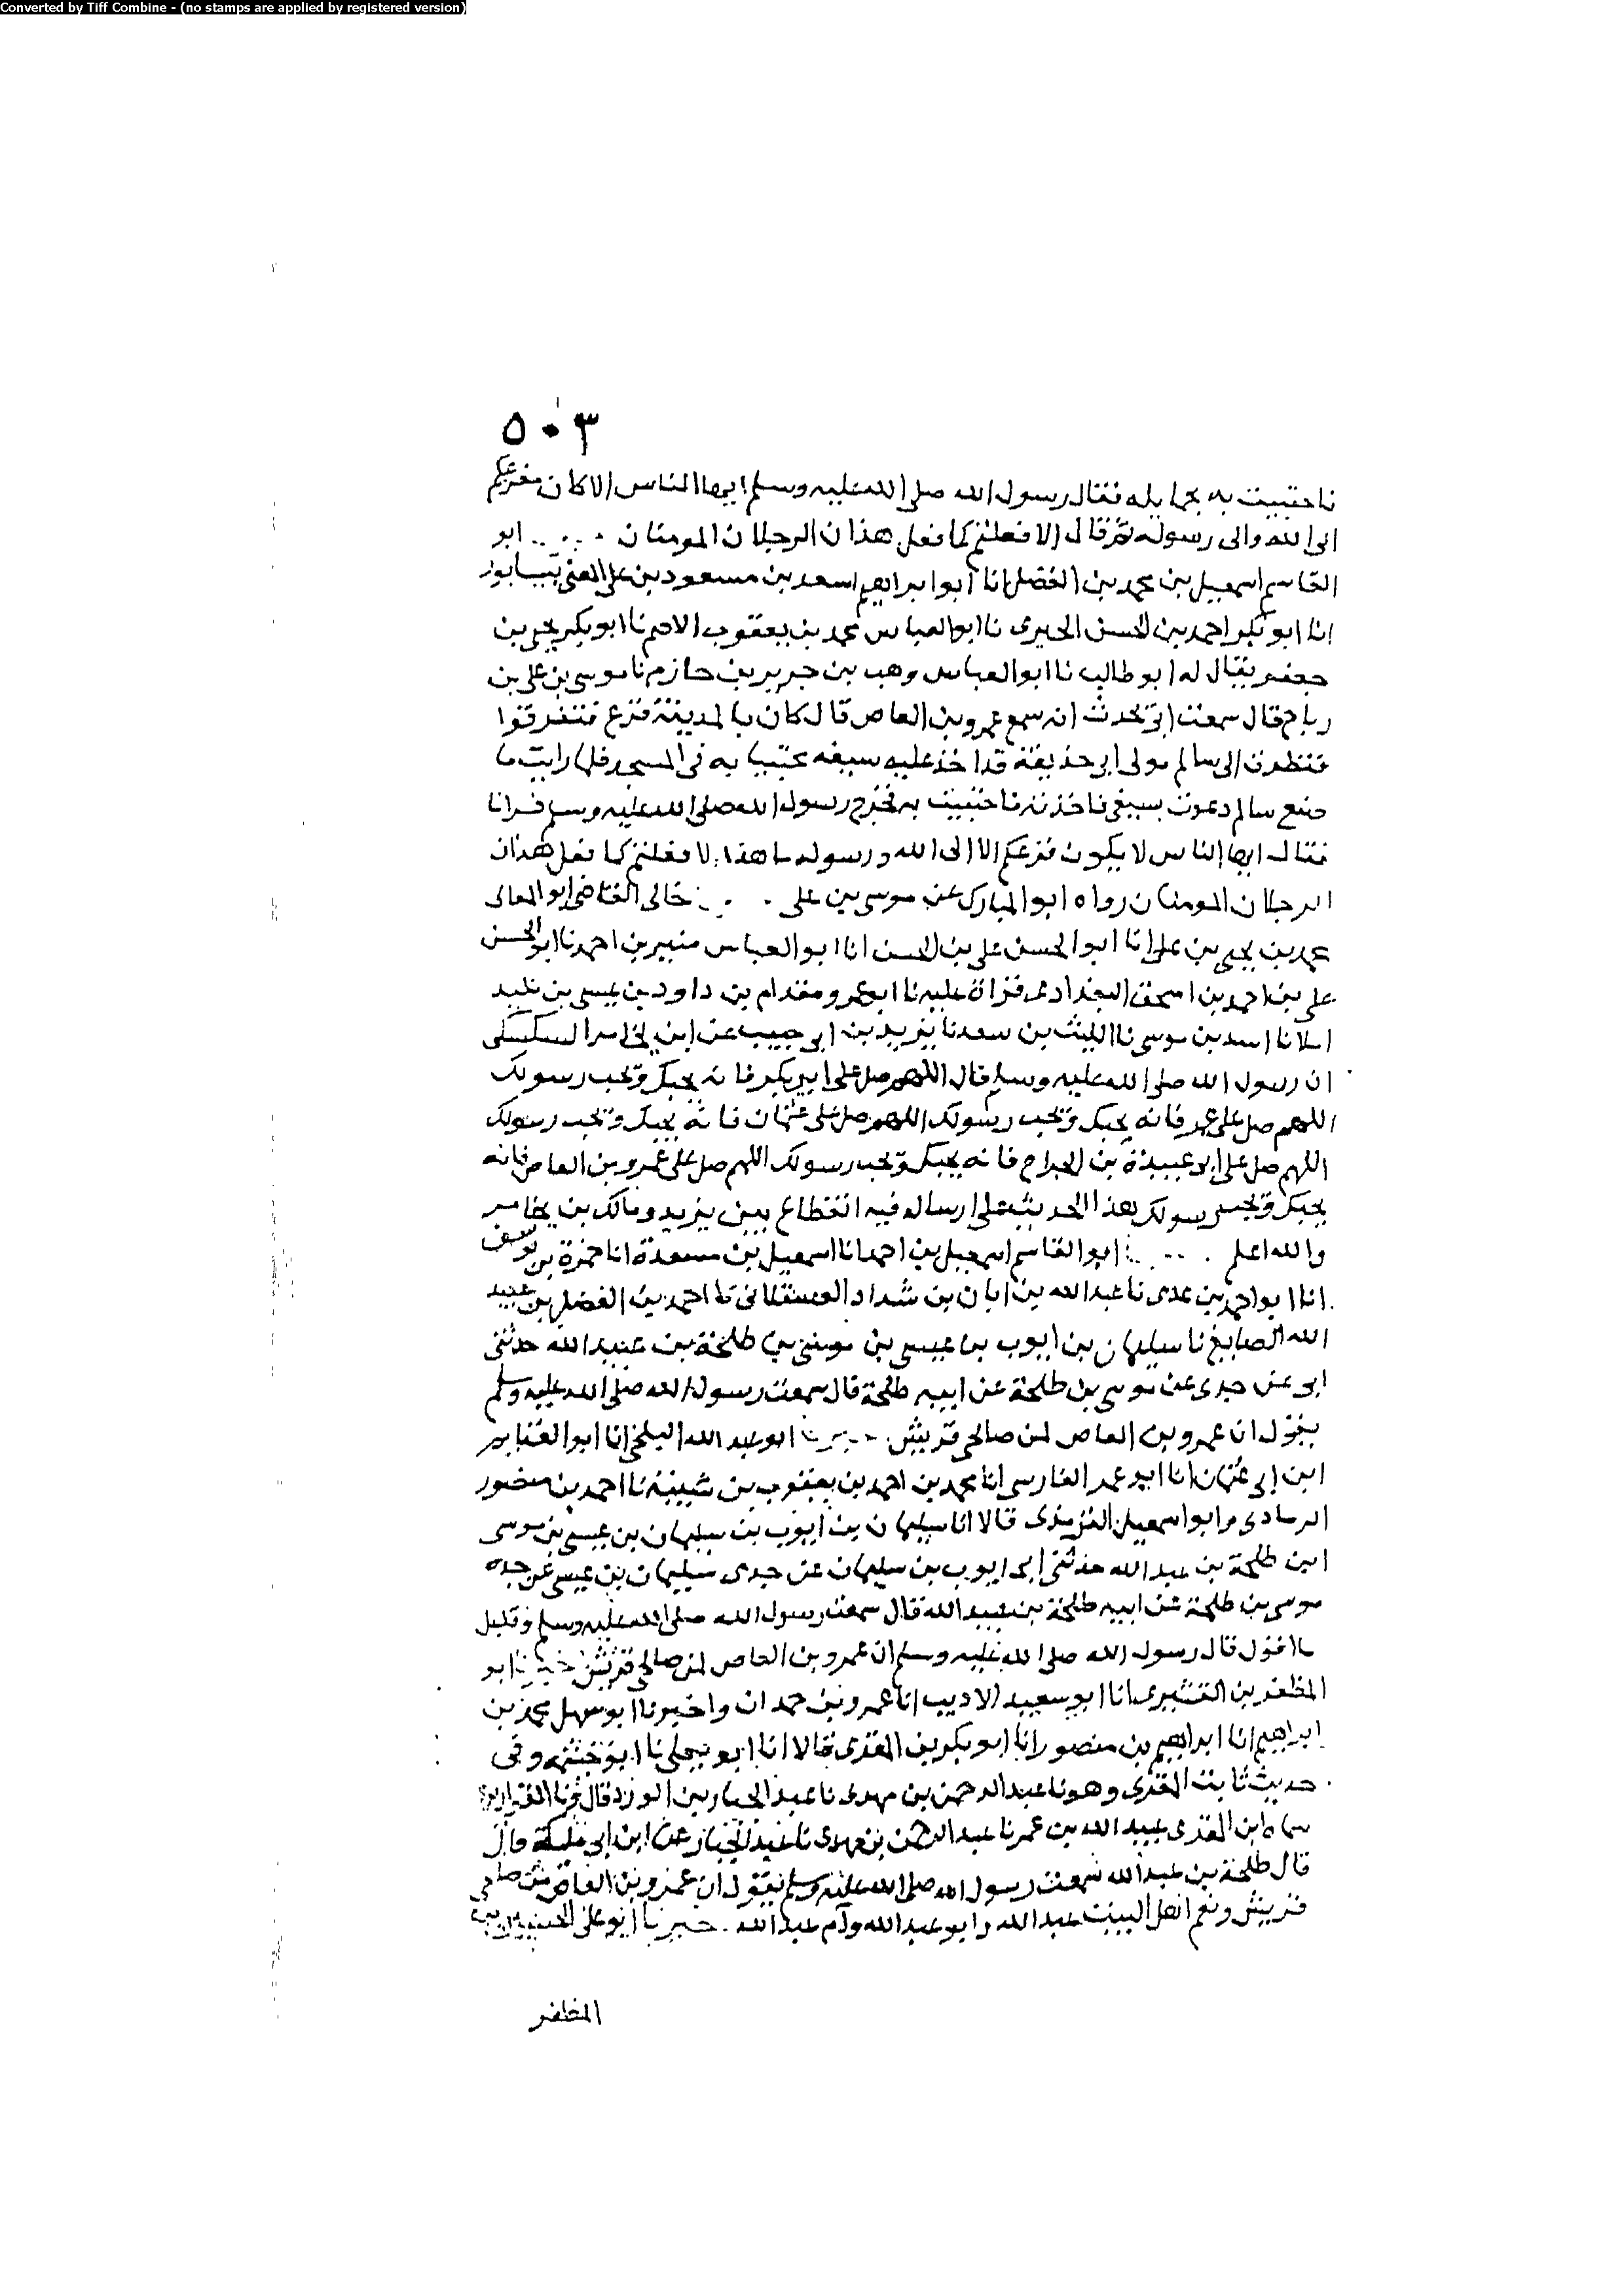 Converted by Tiff Combine - (no stamps are applied by registered version)
٥٠٣
فاحتبيت به بحمايله فقال رسول الله صلى الله عليه وسلم ايها الناس الا كان مفزعكم
الى الله والى رسوله ثم قال الا فعلتم كما فعل هذان الرجلان المومنان ابو
القاسم اسمعيل بن محمد بن الفضل انا ابو ابراهيم اسعد بن مسعود بن على العتبى بنيسابور
انا ابو بكر احمد بن الحسن الحيرى نا ابو العباس محمد بن يعقوب الاصم نا ابو بكر يحيى بن
جعفر يقال له ابو طالب نا ابو العباس وهب بن جرير بن حازم نا موسى بن على بن
رباح قال سمعت ابى يحدث انه سمع عمرو بن العاص قال كان بالمدينة فزع فتفرقوا
فنظرت الى سالم مولى ابى حذيفة قد اخذ عليه سيفه محتبيا به فى المسجد فلما رايت ما
صنع سالم دعوت بسيفى فاخذته فاحتبيت به فخرج رسول الله صلى الله عليه وسلم فرانا
فقال ايها الناس لا يكون فزعكم الا الى الله ورسوله ما هذا الا فعلتم كما فعل هذان
الرجلان المومنان رواه ابو المبارك عن موسى بن على خالى القاضى ابو المعالى
محمد بن يحيى بن على انا ابو الحسن على بن الحسن انا ابو العباس منير بن احمد نا ابو الحسن
على بن احمد بن اسحق البغدادى قراة عليه نا ابو عمرو مقدام بن داود بن عيسى بن تليد
املانا اسد بن موسى نا الليث بن سعد نا يزيد بن ابى حبيب عن ابن يخامر السكسكى
ان رسول الله صلى الله عليه وسلم قال اللهم صل على ابى بكر فانه يحبك ويحب رسولك
اللهم صل على عمر فانه يحبك ويحب رسولك اللهم صل على عثمان فانه يحبك ويحب رسولك
اللهم صل على ابى عبيدة بن الجراح فانه يحبك ويحب رسولك اللهم صل على عمرو بن العاص فانه
يحبك ويحب رسولك هذا الحديث على ارساله فيه انقطاع بين يزيد ومالك بن يخامر
والله اعلم ابو القاسم اسمعيل بن احمد انا اسمعيل بن مسعدة انا حمزة بن يوسف
انا ابو احمد بن عدى نا عبد الله بن ابان بن شداد العسقلانى نا احمد بن الفضل بن عبيد
الله الصايغ نا سليمان بن ايوب بن عيسى بن موسى بن طلحة بن عبيد الله حدثنى
ابى عن جدى عن موسى بن طلحة عن ابيه طلحة قال سمعت رسول الله صلى الله عليه وسلم
يقول ان عمرو بن العاص لمن صالحى قريش ابو عبد الله البلخى انا ابو الغنايم
ابن ابى عثمان انا ابو عمر الفارسى انا محمد بن احمد بن يعقوب بن شيبة نا احمد بن منصور
الرمادى وابو اسمعيل الترمذى قالا انا سليمان بن ايوب بن سليمان بن عيسى بن موسى
ابن طلحة بن عبد الله حدثنى ابى ايوب بن سليمان عن جدى سليمان بن عيسى عن جده
موسى بن طلحة عن ابيه طلحة بن عبيد الله قال سمعت رسول الله صلى الله عليه وسلم وقليل
ما اقول قال رسول الله صلى الله عليه وسلم ان عمرو بن العاص لمن صالحى قريش ابو
المظفر بن القشيرى انا ابو سعيد الاديب انا عمرو بن حمدان واخبرنا ابو سهل محمد بن
ابراهيم انا ابراهيم بن منصور انا ابو بكر بن المقرى قالا انا ابو يعلى نا ابو خيثمة وفى
حديث ثابت المقرى وهو نا عبد الرحمن بن مهدى نا عبد الجبار بن الورد قال
ابن المقرى عبيد الله بن عمر نا عبد الرحمن بن مهدى نا عبد الجبار عن ابن ابى مليكة قال
قال طلحة بن عبد الله سمعت رسول الله صلى الله عليه وسلم يقول ان عمرو بن العاص من صالحى
قريش ونعم اهل البيت عبد الله وابو عبد الله وام عبد الله خبرنا ابو على الحسين بن
المظفر